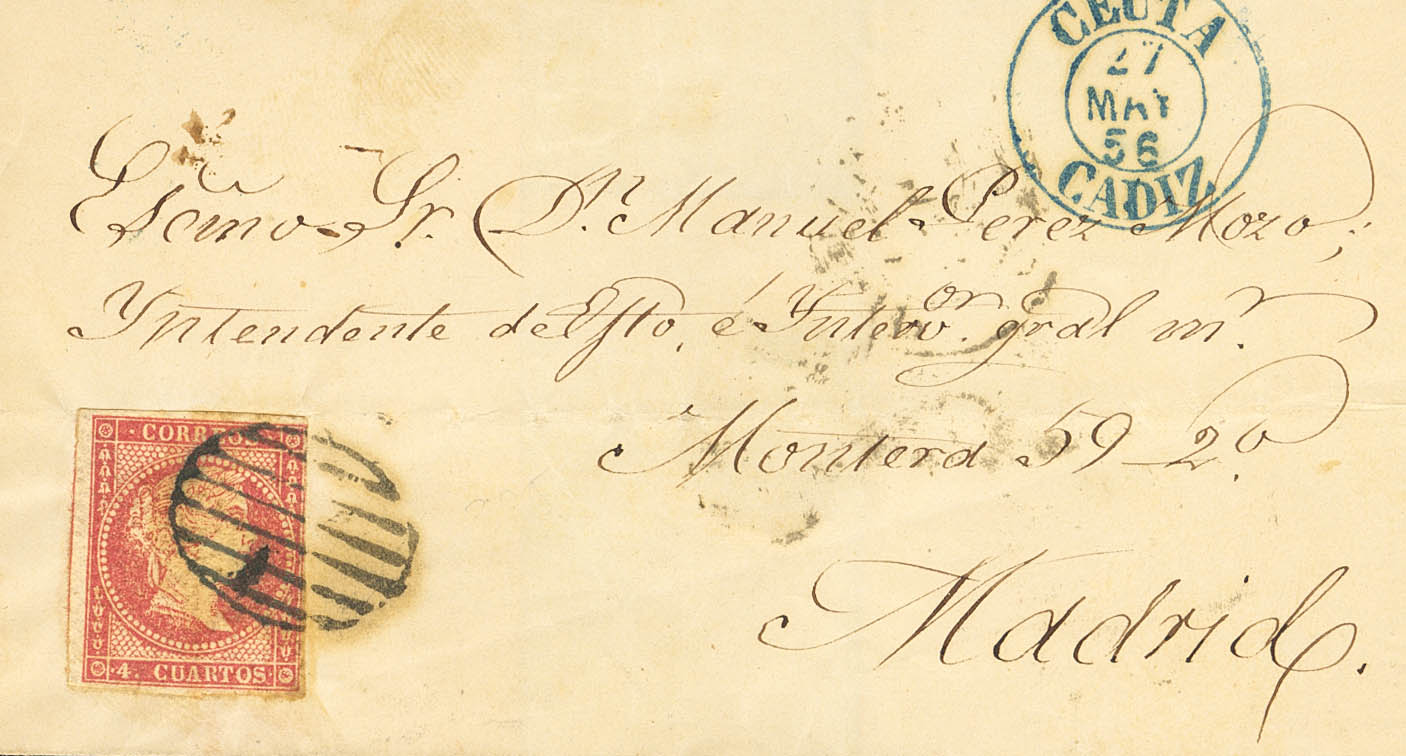 CEUTA
27
MAY
56
CADIZ
Escmo Sr. Dn. Manuel Perez Mozo,
Yntendente de Efto, é Yntervor. gral mr.
Montera 59_2º
Madrid.
CORREOS
4. CUARTOS